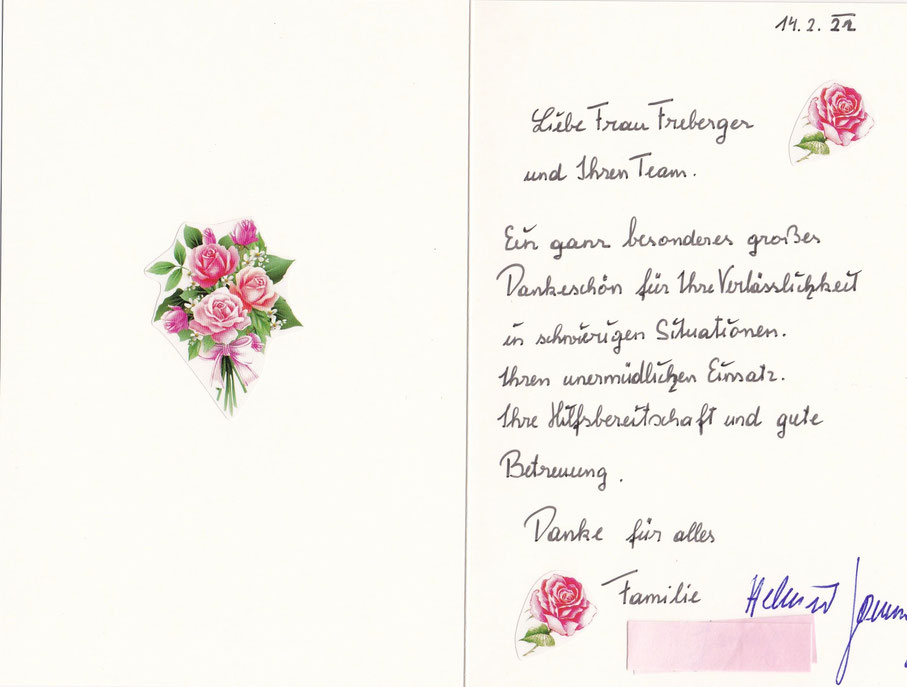 14. 2. 22
Liebe Frau Freberger
und Ihren Team.
Ein ganz besonderes großes
Dankeschön für Ihre Verlässlichkeit
in schwierigen Situationen.
Ihren unermüdlichen Einsatz.
Ihre Hilfsbereitschaft und gute
Betreuung.
Danke für alles
Familie Helmut